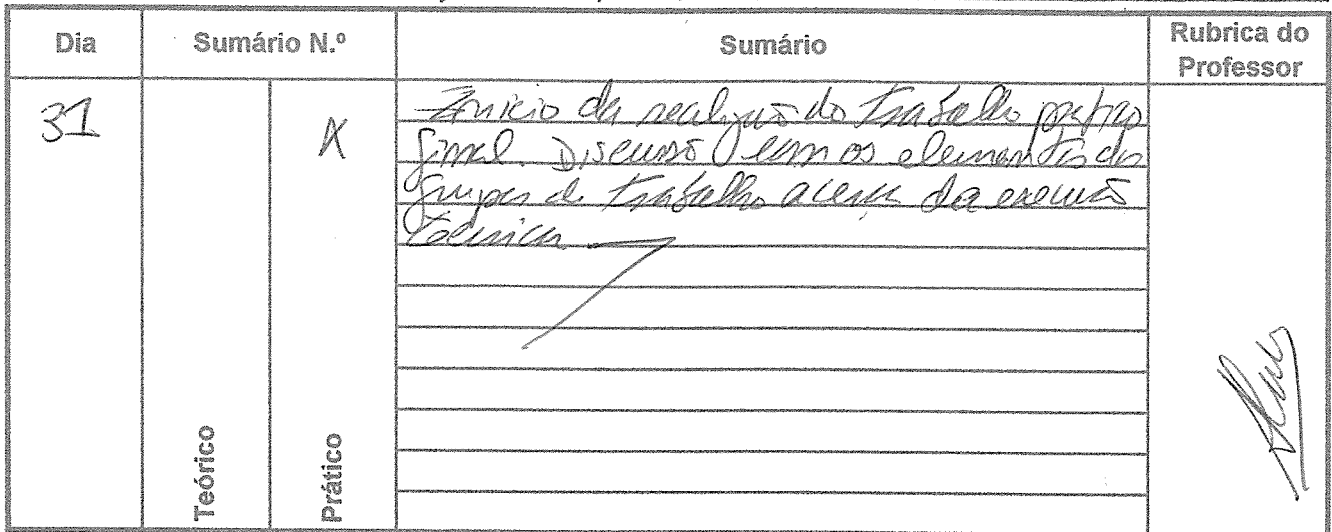 Dia
Sumário N.º
Sumário
Rubrica do
Professor
31
X
Início da realização do trabalho prático
final. Discussão com os elementos dos
grupos de trabalho acerca da execução
técnica
Teórico
Prático